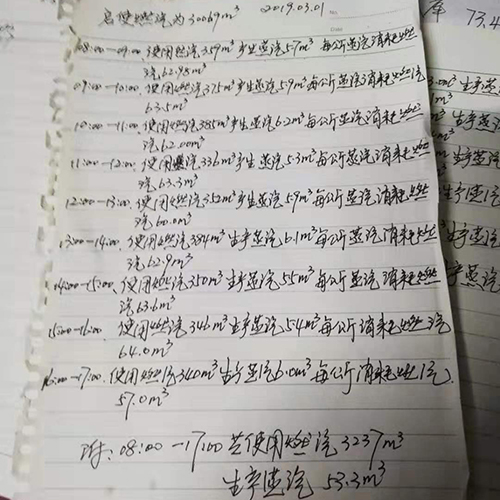 启使燃汽为30069m³ 2019.03.01
08:00—09:00 使用燃汽359m³产生蒸汽5.7m³每公斤蒸汽消耗燃
汽62.98m³
09:00—10:00 使用燃汽375m³产生蒸汽5.9m³每公斤蒸汽消耗燃汽
63.5m³
10:00—11:00 使用燃汽385m³产生蒸汽6.2m³每公斤蒸汽消耗燃
汽62.00m³
11:00—12:00 使用燃汽336m³产生蒸汽5.3m³每公斤蒸汽消耗燃
汽63.3m³
12:00—13:00 使用燃汽352m³产生蒸汽5.9m³每公斤蒸汽消耗燃
汽60.0m³
13:00—14:00 使用燃汽384m³生产蒸汽6.1m³每公斤蒸汽消耗燃
汽62.9m³
14:00—15:00 使用燃汽350m³生产蒸汽5.5m³每公斤蒸汽消耗燃
汽63.6m³
15:00—16:00 使用燃汽346m³生产蒸汽5.4m³每公斤消耗燃汽
64.0m³
16:00—17:00 使用燃汽340m³生产蒸汽6.0m³每公斤消耗燃汽
57.0m³
08:00—17:00 共使用燃汽3237m³
生产蒸汽 53.3m³
73.4